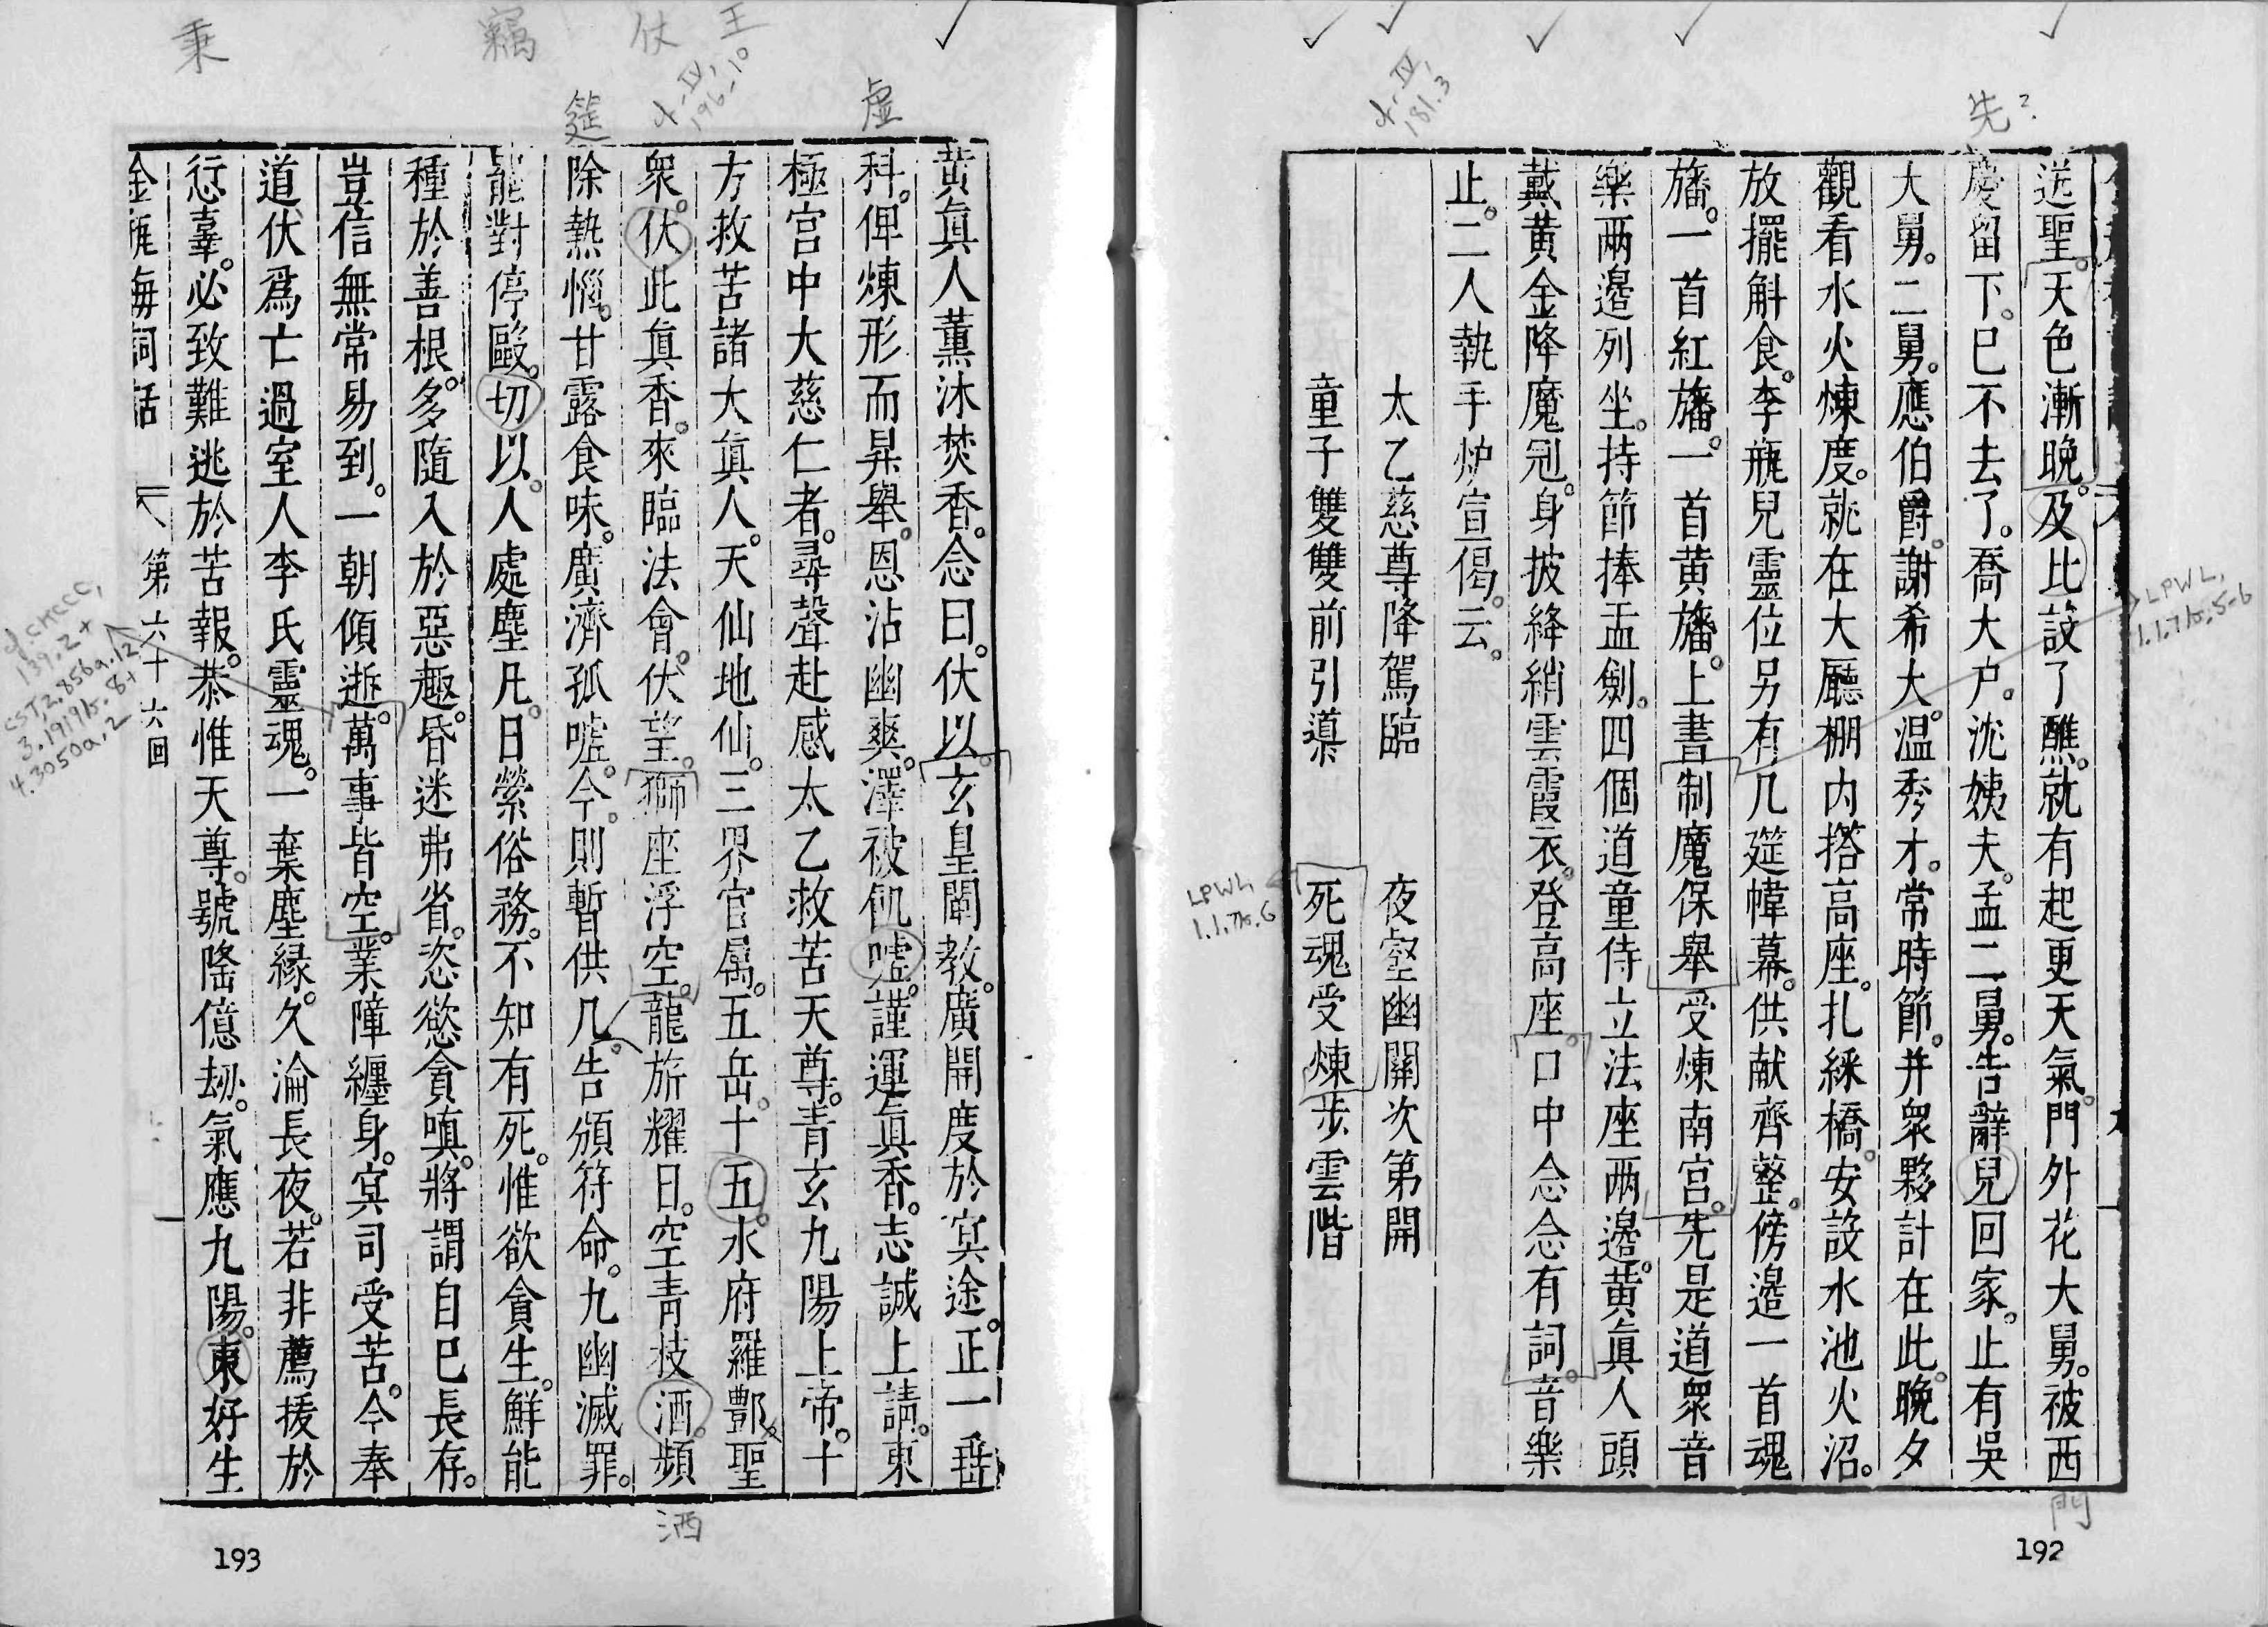 先?
送聖。天色漸晚。及比設了醮。就有起更天氣。門外花大舅。被西
慶留下。已不去了。喬大户。沈姨夫。孟二舅。告辭兒回家。止有吳
大舅。二舅。應伯爵。謝希大。温秀才。常時節。并衆夥計在此。晚夕
觀看水火煉度。就在大廳棚内搭高座。扎綵橋。安設水池火沼。
放擺斛食。李瓶兒靈位另有几筵幃幕。供献齊整。傍邊一首魂
旛。一首紅旛。一首黄旛。上書制魔保舉受煉南宫。先是道衆音
樂兩邊列坐。持節捧盂劍。四個道童侍立法座兩邊。黄真人頭
戴黄金降魔冠。身披絳綃雲霞衣。登高座。口中念念有詞。音樂
止。二人執手炉宣偈。云。
太乙慈尊降駕臨 夜壑幽關次第開
童子雙雙前引導 死魂受煉步雲階
門
LPWL,
1.1.7b.5-6
cf. IV,
181.3
LPWL
1.1.7b.6
192
虚
黄真人薰沐焚香。念曰。伏以。玄皇闡教。廣開度於冥途。正一垂
科。俾煉形而昇舉。恩沾幽爽。澤被飢嘘。謹運真香。志誠上請。東
極宫中大慈仁者。尋聲赴感太乙救苦天尊。青玄九陽上帝。十
方救苦諸大真人。天仙地仙。三界官属。五岳。十五。水府羅酆聖
衆。伏此真香。來臨法會。伏望。獅座浮空。龍旂耀日。空青枝酒。頻
除熱惱。甘露食味。廣濟孤嘘。今。則暫供几。告頒符命。九幽滅罪。
能對停毆。切以。人處塵凡。日縈俗務。不知有死。惟欲貪生。鮮能
種於善根。多隨入於惡趣。昏迷弗省。恣慾貪嗔。將謂自巳長存。
豈信無常易到。一朝傾逝。萬事皆空。業障纏身。冥司受苦。今奉
道伏爲亡過室人李氏靈魂。一棄塵緣。久淪長夜。若非薦拔於
愆辜。必致難逃於苦報。恭惟天尊。號隆億劫。氣應九陽。東好生
金瓶梅詞話 第六十六回
王
仗
竊
秉
筵
cf. IV,
196.10
洒
cf CHCCC,
139.2+
CST,2.856a.12
3.1919b.8+
4.3050a.2
193